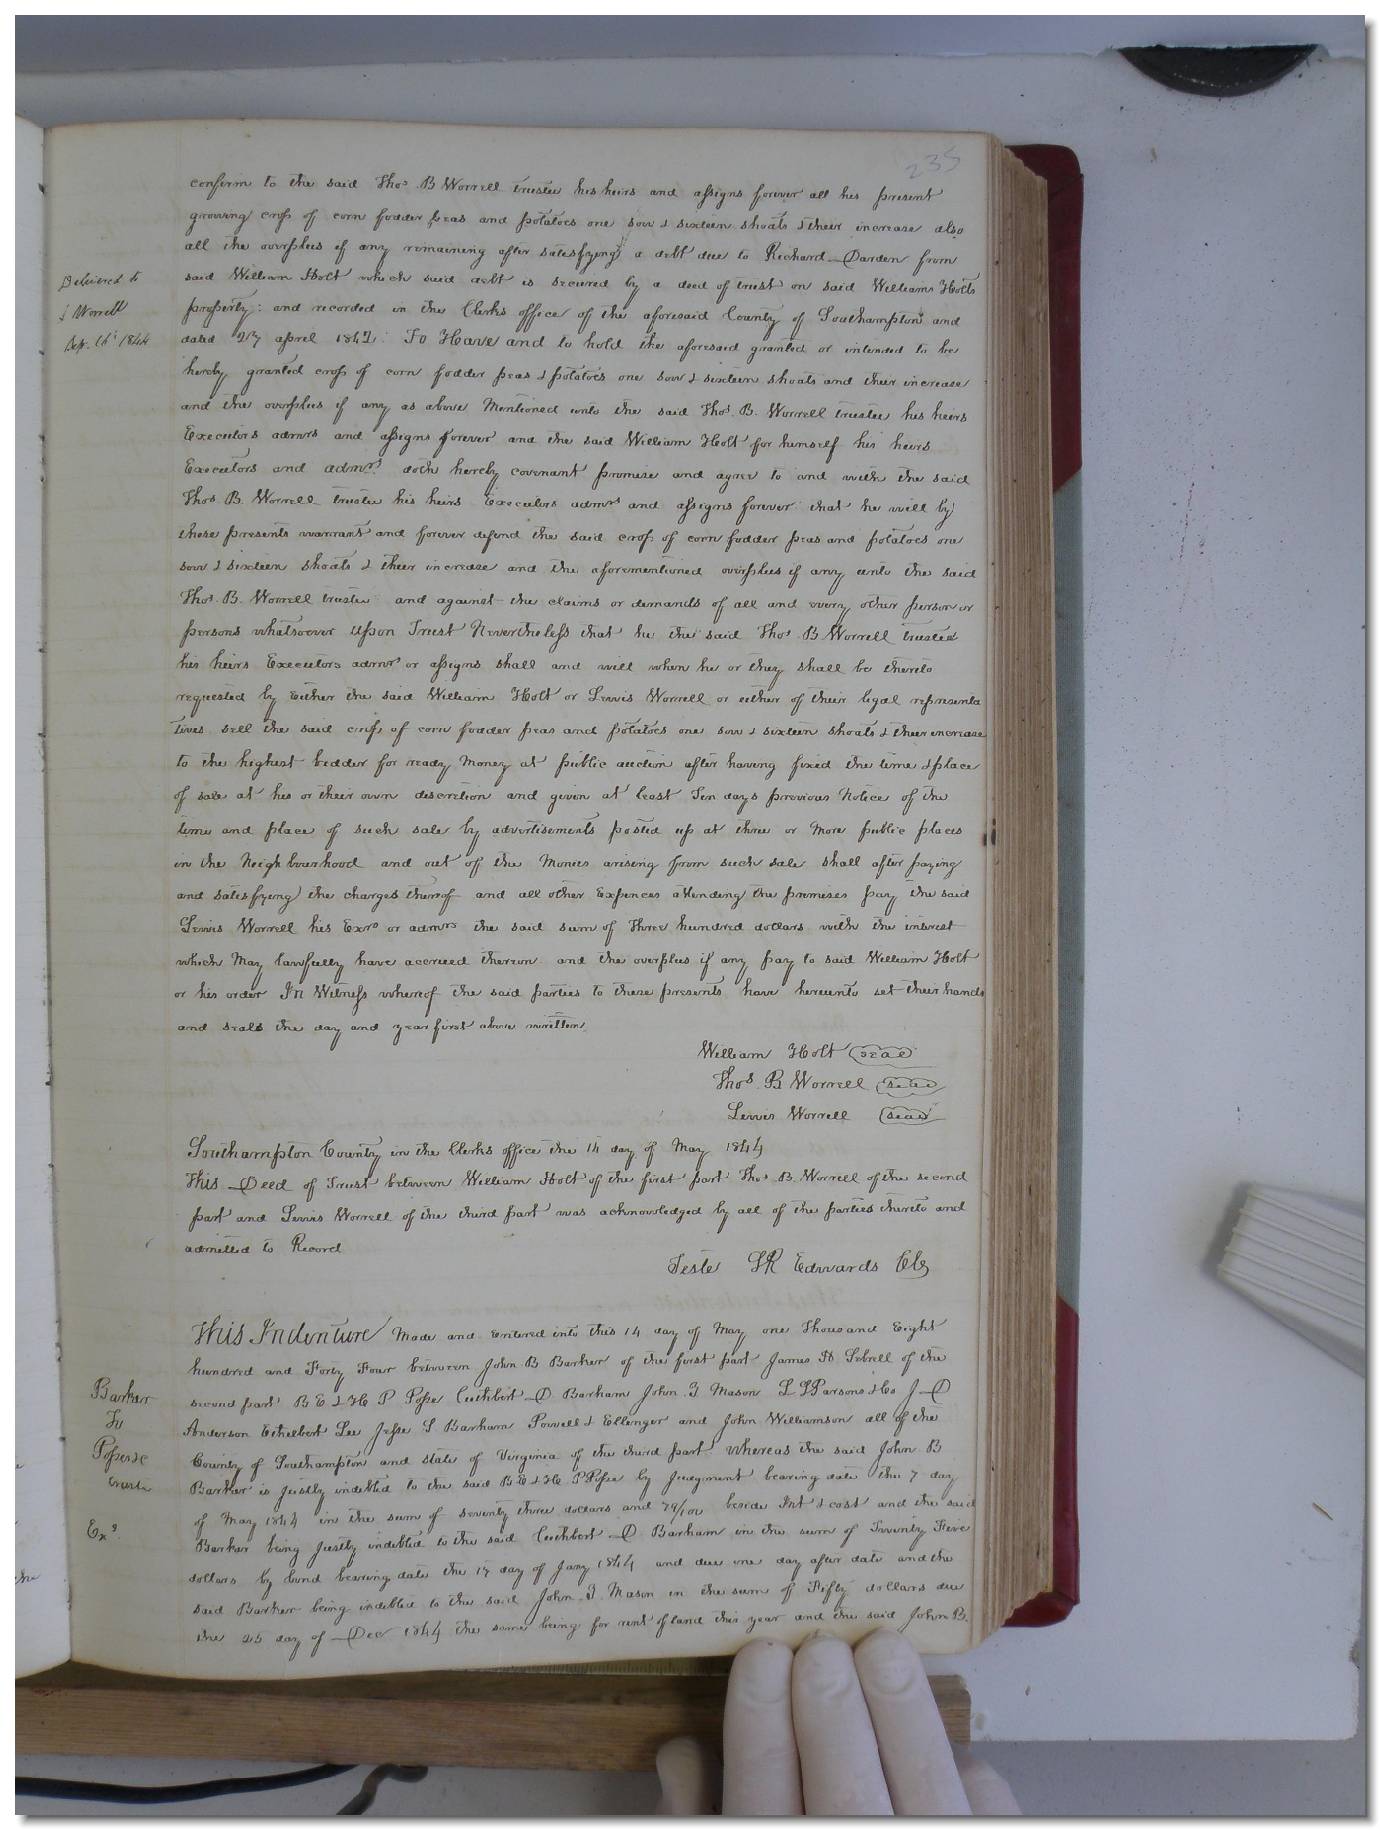 235
confirm to the said Thos B Worrell trustee his heirs and assigns forever all his present
growing crop of corn fodder peas and potatoes one sow & sixteen shoats & their increase also
all the overplus if any remaining after satisfying a debt due to Richard Darden from
said William Holt which said debt is secured by a deed of trust on said Williams Holts
property: and recorded in the Clerks office of the aforesaid County of Southampton and
dated 27 april 1842 To Have and to hold the aforesaid granted or intended to be
hereby granted crop of corn fodder peas & potatoes one sow & sixteen shoats and their increase
and the overplus if any as above Mentioned unto the said Thos. B. Worrell trustee his heirs
Executors admrs and assigns forever and the said William Holt for himself his heirs
Executors and admrs doth hereby covenant promise and agree to and with the said
Thos B. Worrell trustee his heirs Executors admrs and assigns forever that he will by
these presents warrant and forever defend the said crop of corn fodder peas and potatoes one
sow & sixteen shoats & their increase and the aforementioned overplus if any unto the said
Thos. B. Worrell trustee and against the claims or demands of all and every other person or
persons whatsoever Upon Trust Nevertheless that he the said Thos B Worrell trustee
his heirs Executors admrs or assigns shall and will when he or they shall be thereto
requested by Either the said William Holt or Lewis Worrell or either of their legal representa
tives sell the said crop of corn fodder peas and potatoes one sow & sixteen shoats & their increase
to the highest bidder for ready Money at public auction after having fixed the time & place
of sale at his or their own discretion and given at least Ten days previous Notice of the
time and place of such sale by advertisements posted up at three or More public places
in the Neighbourhood and out of the Monies arising from such sale shall after paying
and satisfying the charges thereof and all other Expences attending the premises pay the said
Lewis Worrell his Exrs or admrs the said sum of Three hundred dollars with the interest
which May lawfully have accrued thereon and the overplus if any pay to said William Holt
or his order In Witness whereof the said parties to these presents have hereunto set their hands
and seals the day and year first above written.
William Holt seal
Thos B Worrell seal
Lewis Worrell seal
Southampton County in the Clerks office the 14 day of May 1844
This Deed of Trust between William Holt of the first part Thos B. Worrell of the second
part and Lewis Worrell of the third part was acknowledged by all of the parties thereto and
admitted to Record
Teste LR Edwards Clk
Delivered to
L Worrell
Sep. 16 1844
This Indenture Made and Entered into this 14 day of May one Thousand Eight
hundred and Forty Four between John B Barker of the first part James H Sebrell of the
second part B E & H P Pope Cuthbert D Barham John T Mason L L Parsons & Co J D
Anderson Ethelbert Lee Jesse S Barham Powell & Ellenger and John Williamson all of the
County of Southampton and state of Virginia of the third part. Whereas the said John B
Barker is justly indebted to the said B E & H P Pope by Judgment bearing date the 7 day
of May 1844 in the sum of seventy three dollars and 79/100 beside Int & cost and the said
Barker being Justly indebted to the said Cuthbert D Barham in the sum of Twenty Five
dollars by bond bearing date the 17 day of Jany 1844 and due one day after date and the
said Barker being indebted to the said John T Mason in the sum of Fifty dollars due
the 25 day of Dec 1844 the same being for rent of land this year and the said John B.
Barker
To
Pope &c
trust
Exd